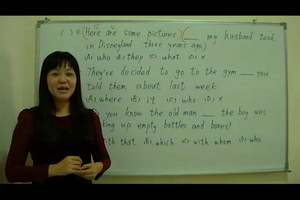 ( ) 1. (Here are some pictures) ___ my husband took
in Disneyland three years ago.
A) who B) they C) what D) x
They've decided to go to the gym ___ you
told them about last week
A) where B) it C) who D) x
you know the old man ___ the boy was
king up empty bottles and boxes?
with that B) which C) with whom D) who